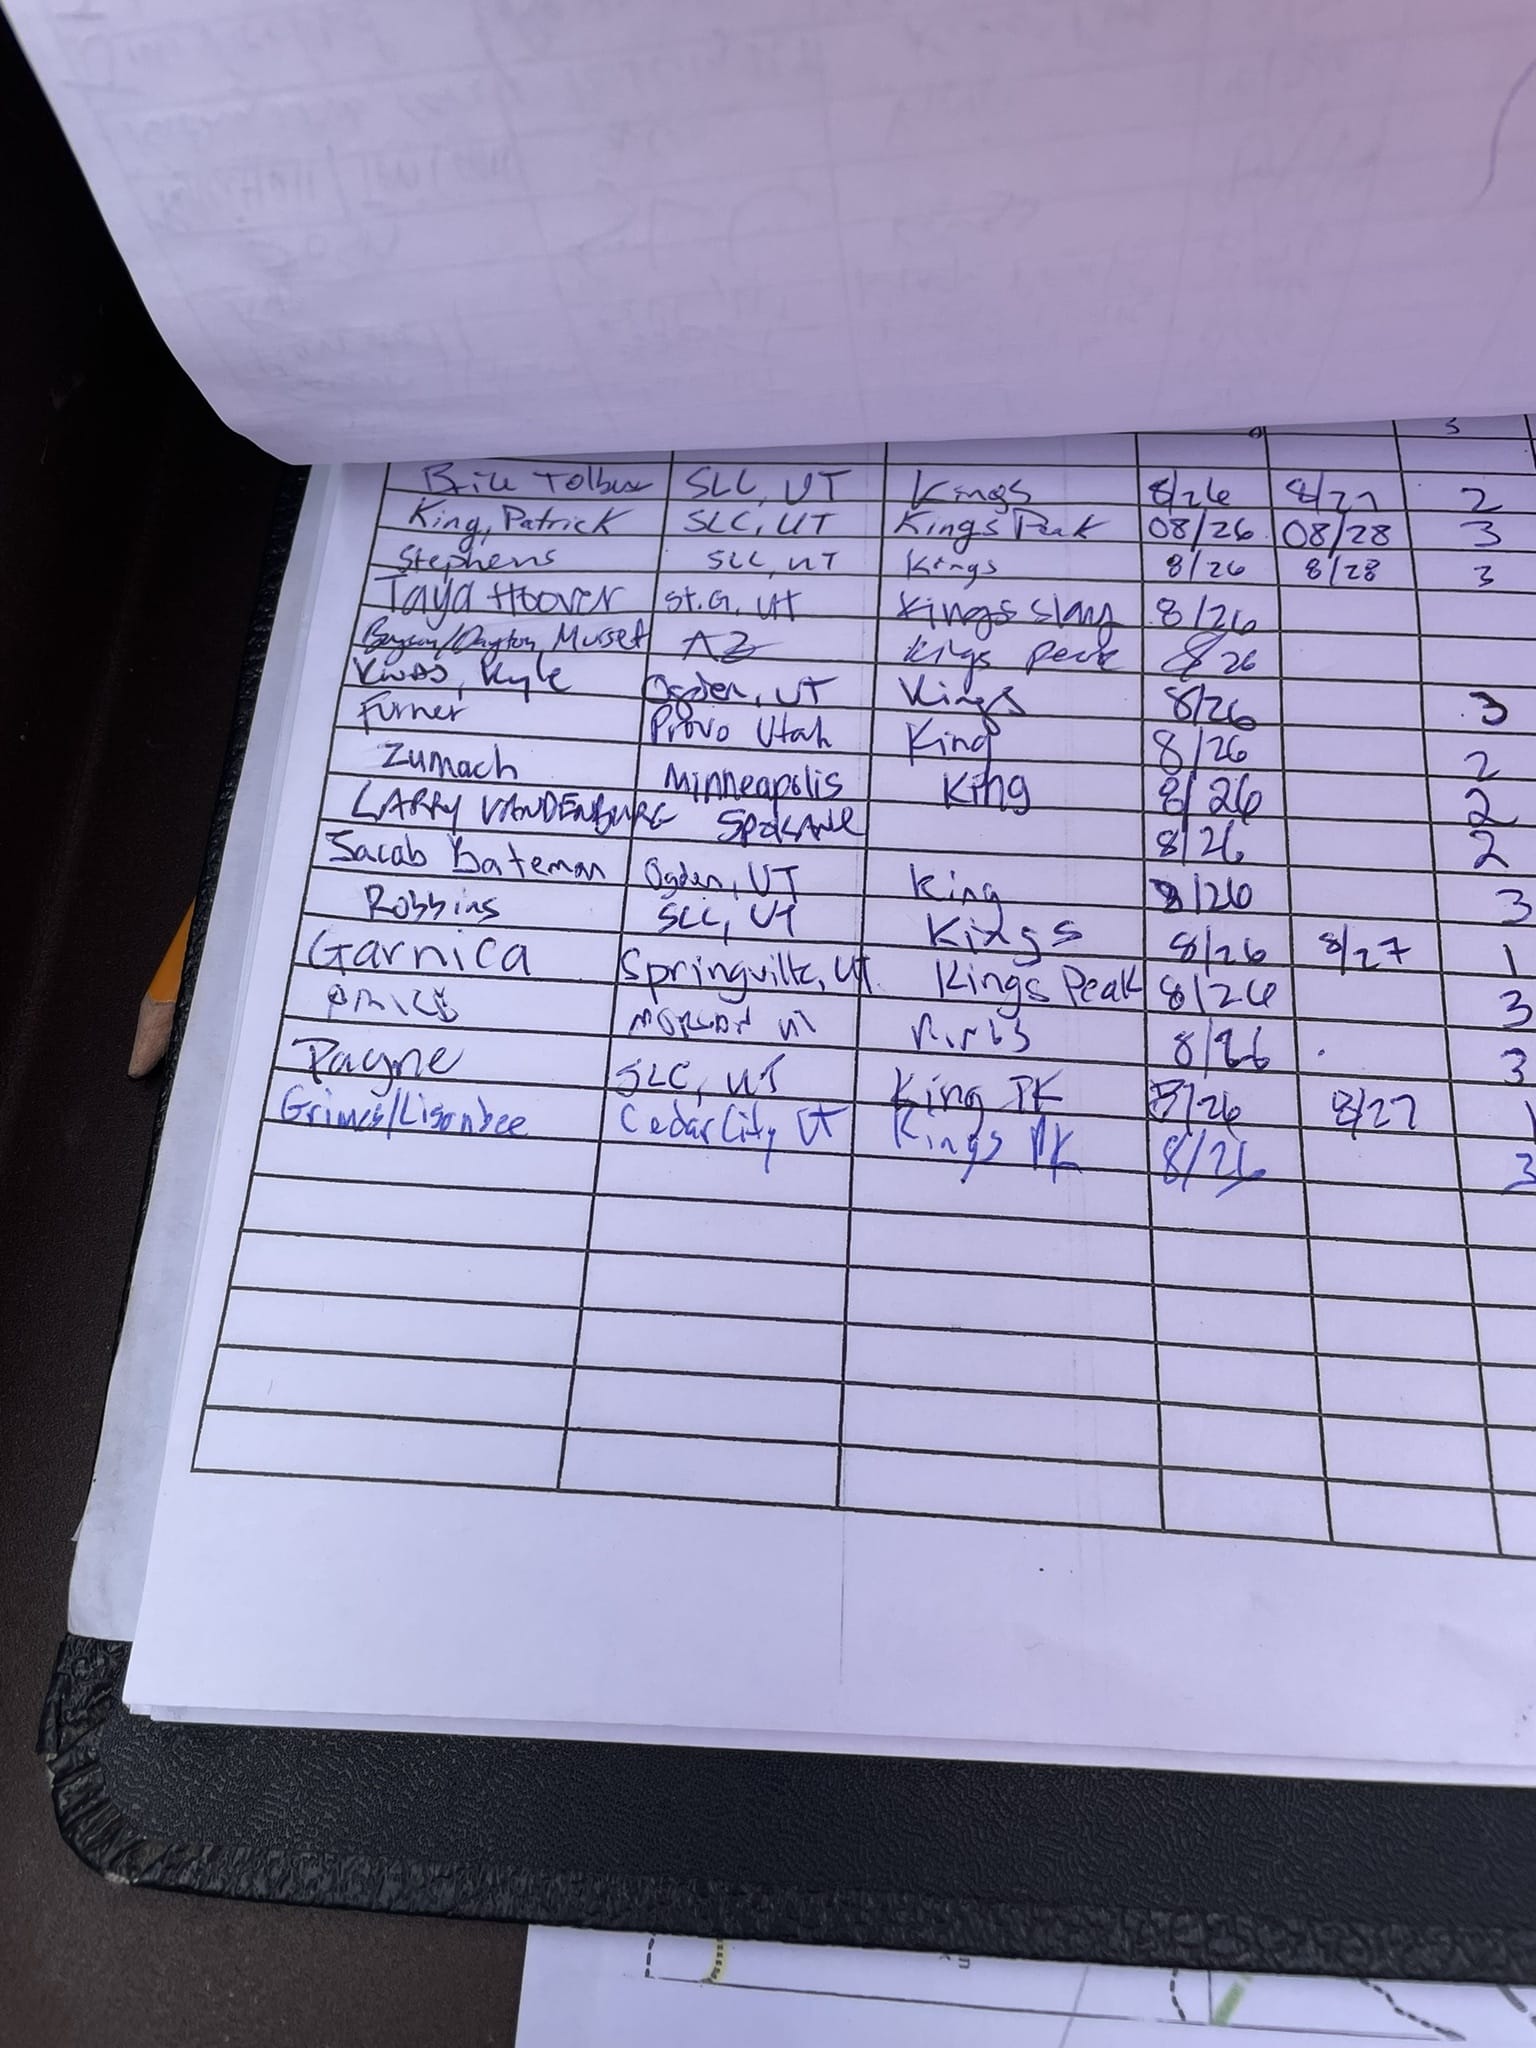 3
Tolbux SLC, UT Kings 8/26 8/27 2
King, Patrick SLC, UT Kings Peak 08/26 08/28 3
Stephens SLC, UT Kings 8/26 8/28 3
Taya Hoover St.G, UT Kings 8/26
Dayton Musset AZ Kigs peak 8 26
Kyle Ogden, UT Kings 8/26 3
Furner Provo Utah King 8/26 2
Zumach Minneapolis King 8/26 2
LARRY VANDENBURG SPOKANE 8/26 2
Jacob Bateman Ogden, UT King 8/26 3
Robbins SLC, UT Kings 8/26 8/27 1
Garnica Springville, UT Kings Peak 8/26 3
PRICE UT 8/26 3
Payne SLC, UT King PK 8/26 8/27 1
Grimes/Lisonbee Cedar City UT Kings PK 8/26 3